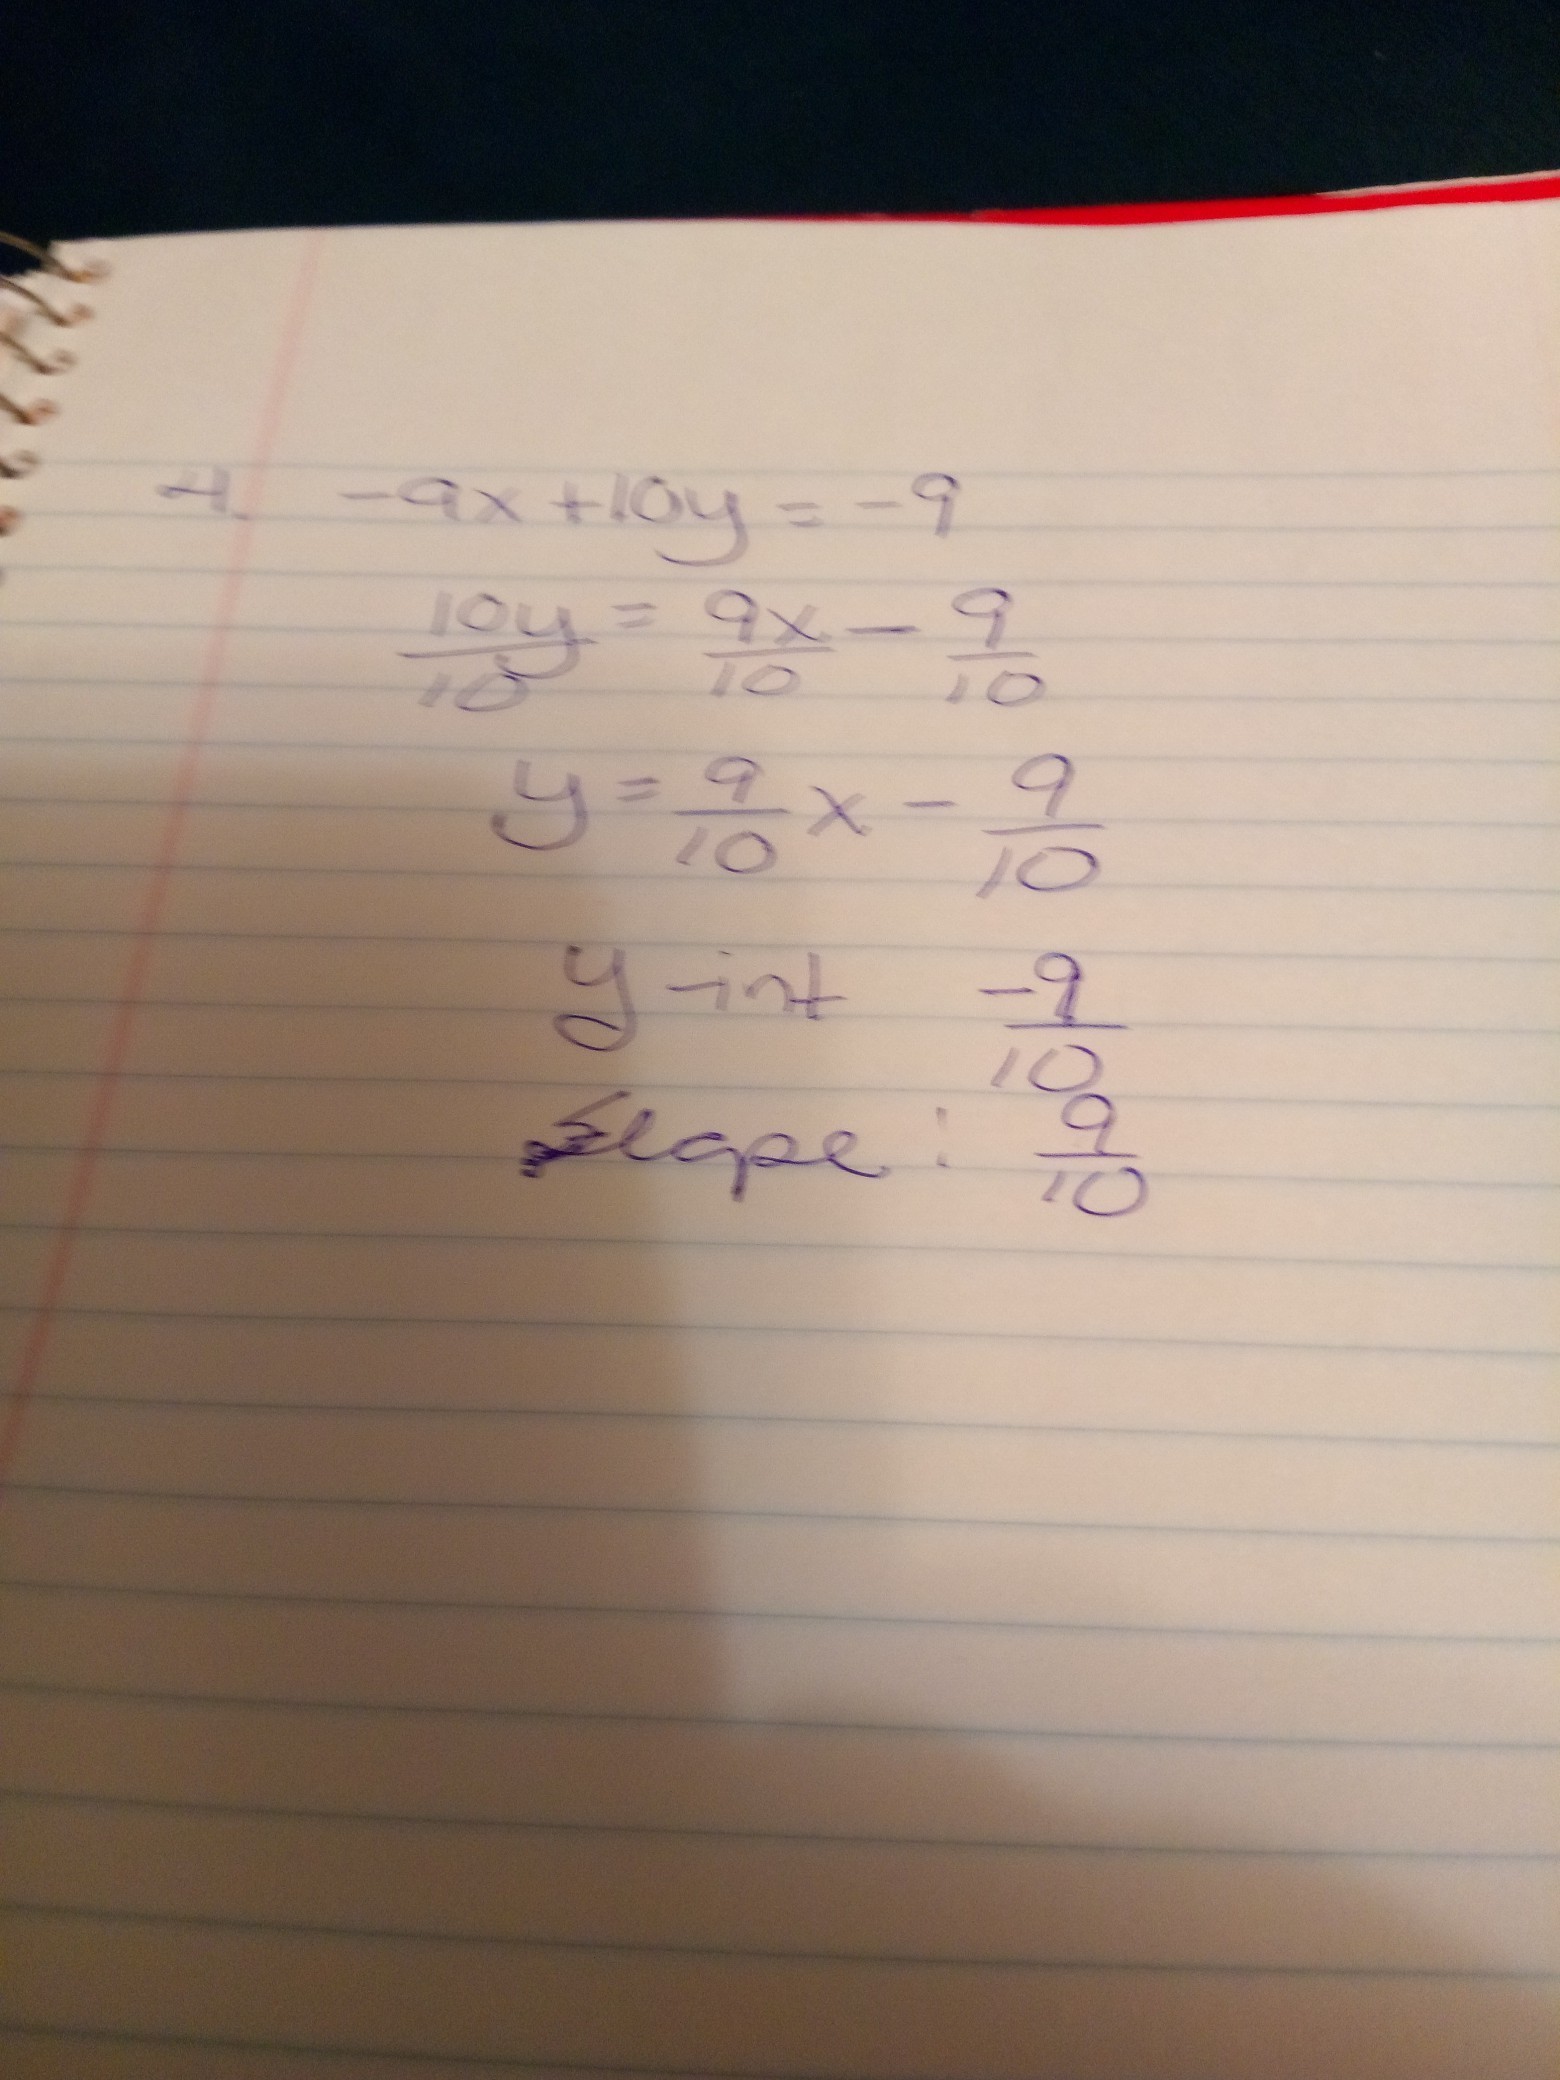 4. -9x+10y = -9
10y/10 = 9x/10 - 9/10
y = 9/10 x - 9/10
y-int -9/10
Slope: 9/10